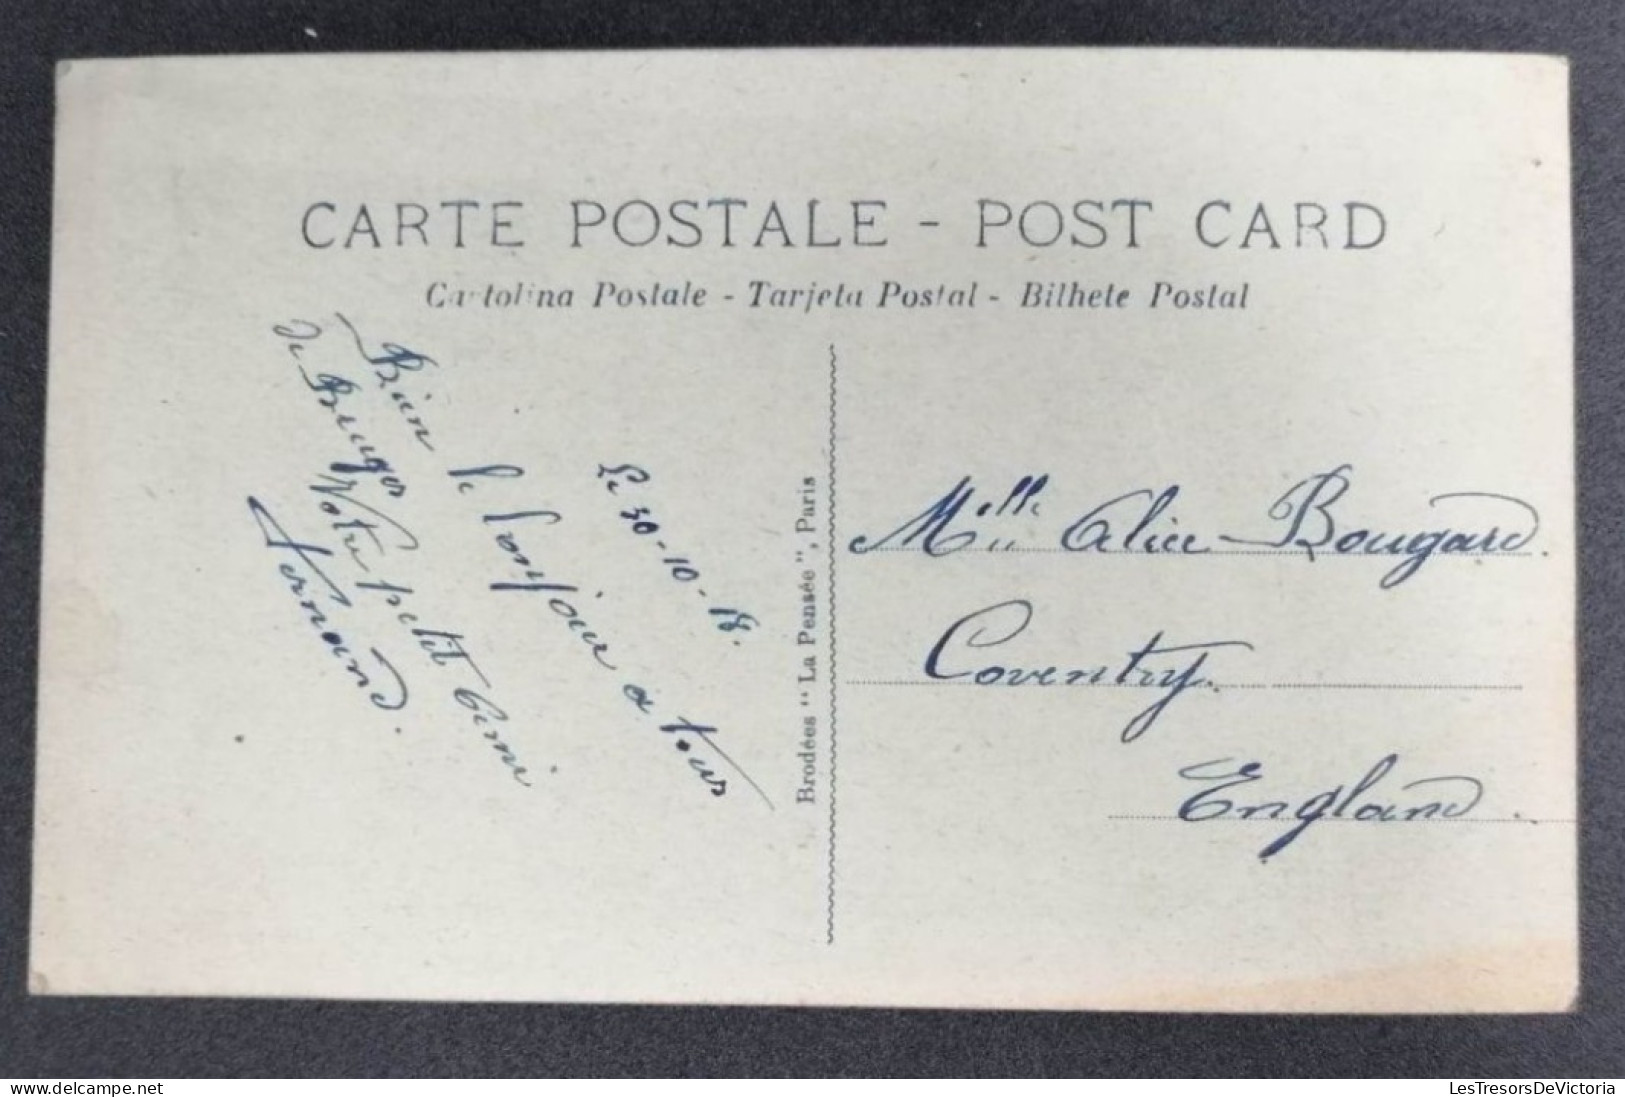 CARTE POSTALE - POST CARD
Cartolina Postale - Tarjeta Postal - Bilhete Postal
Le 30-10-18.
Bien le bonjour a tous
De Bruges
Votre petit Ami
Fernand.
Brodées “ La Pensée ”, Paris
Melle Alice Bougard.
Coventry.
England.
LesTresorsDeVictoria